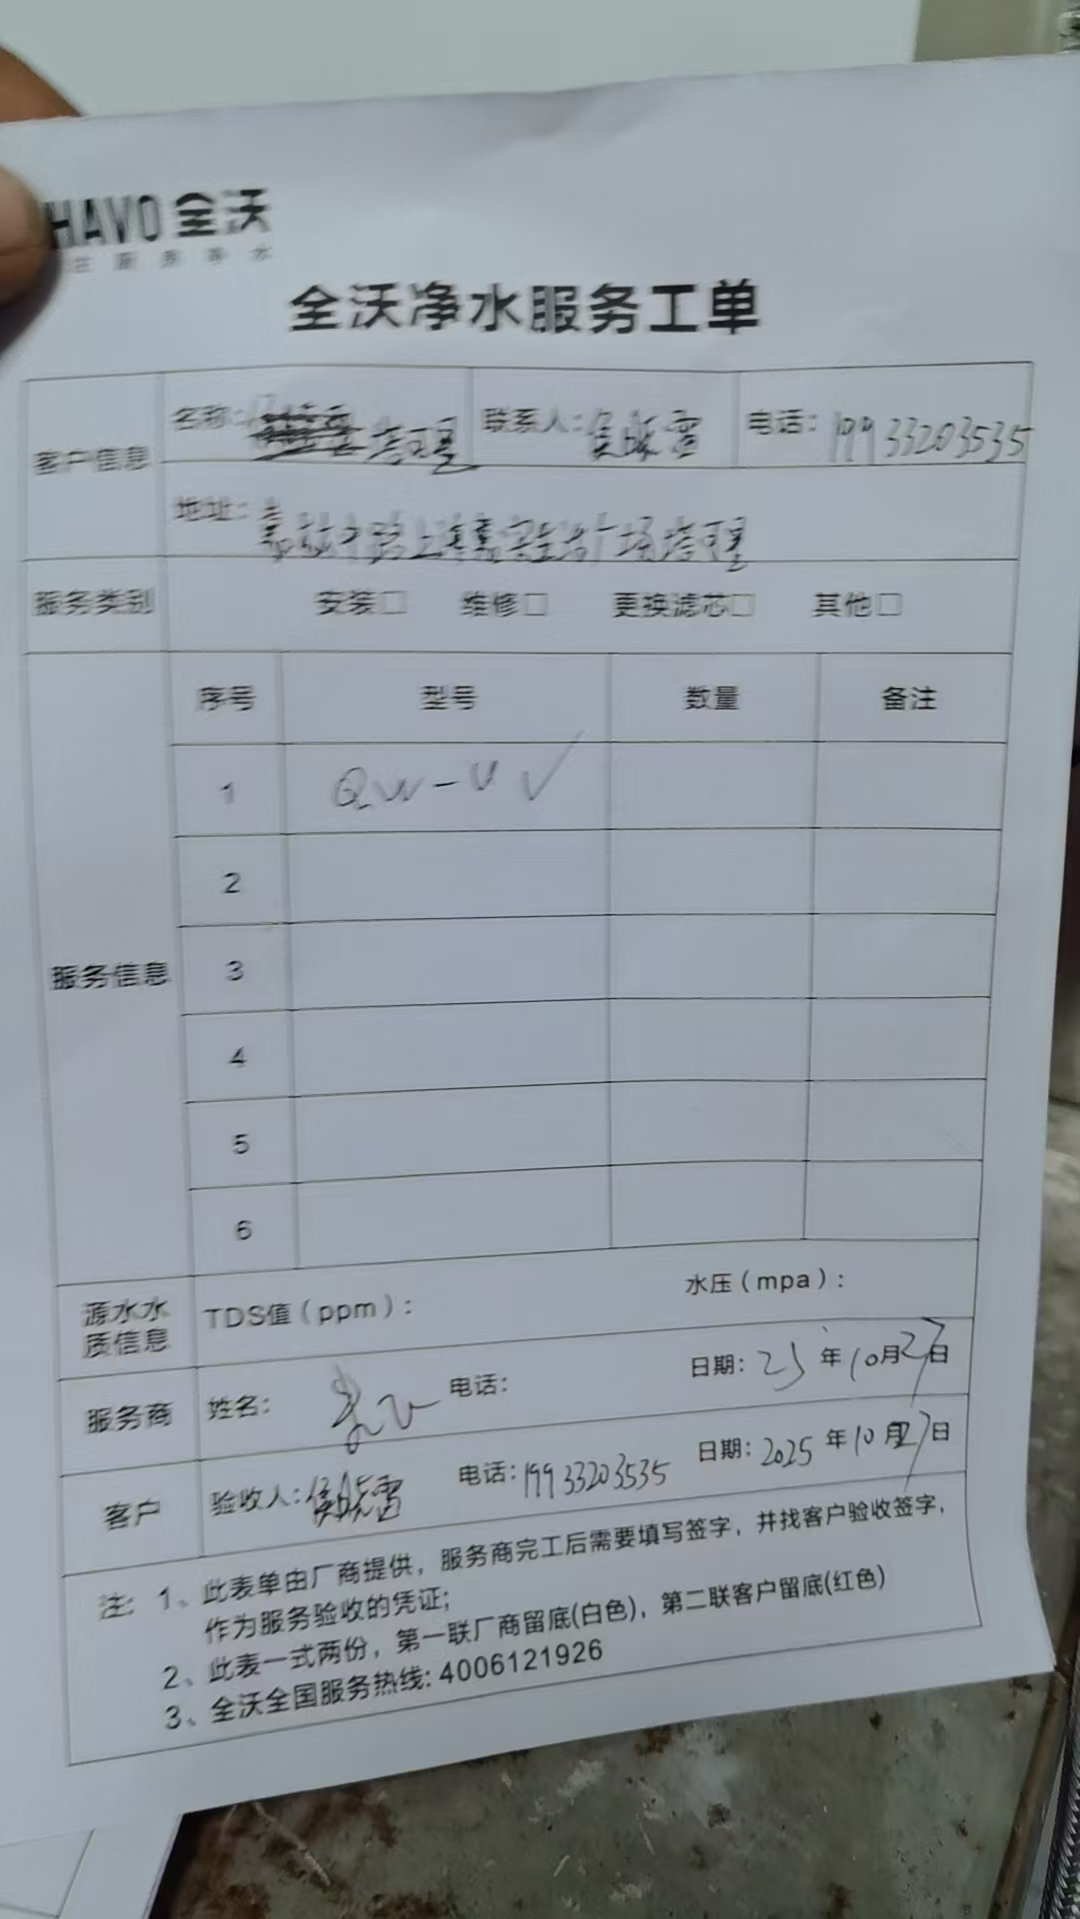 HAVO 全沃
全沃净水服务工单
客户信息 名称: 塔可星 联系人: 侯晓雪 电话: 19933203535
地址: 路上海嘉定生活广场塔可星
服务类别 安装□ 维修□ 更换滤芯□ 其他□
服务信息 序号 型号 数量 备注
1 QW-U ✓
2
3
4
5
6
源水水质信息 TDS值(ppm): 水压(mpa):
服务商 姓名: 电话: 日期: 25年10月27日
客户 验收人: 侯晓雪 电话: 19933203535 日期: 2025年10月27日
注: 1、此表单由厂商提供，服务商完工后需要填写签字，并找客户验收签字，
作为服务验收的凭证;
2、此表一式两份，第一联厂商留底(白色)，第二联客户留底(红色)
3、全沃全国服务热线: 4006121926